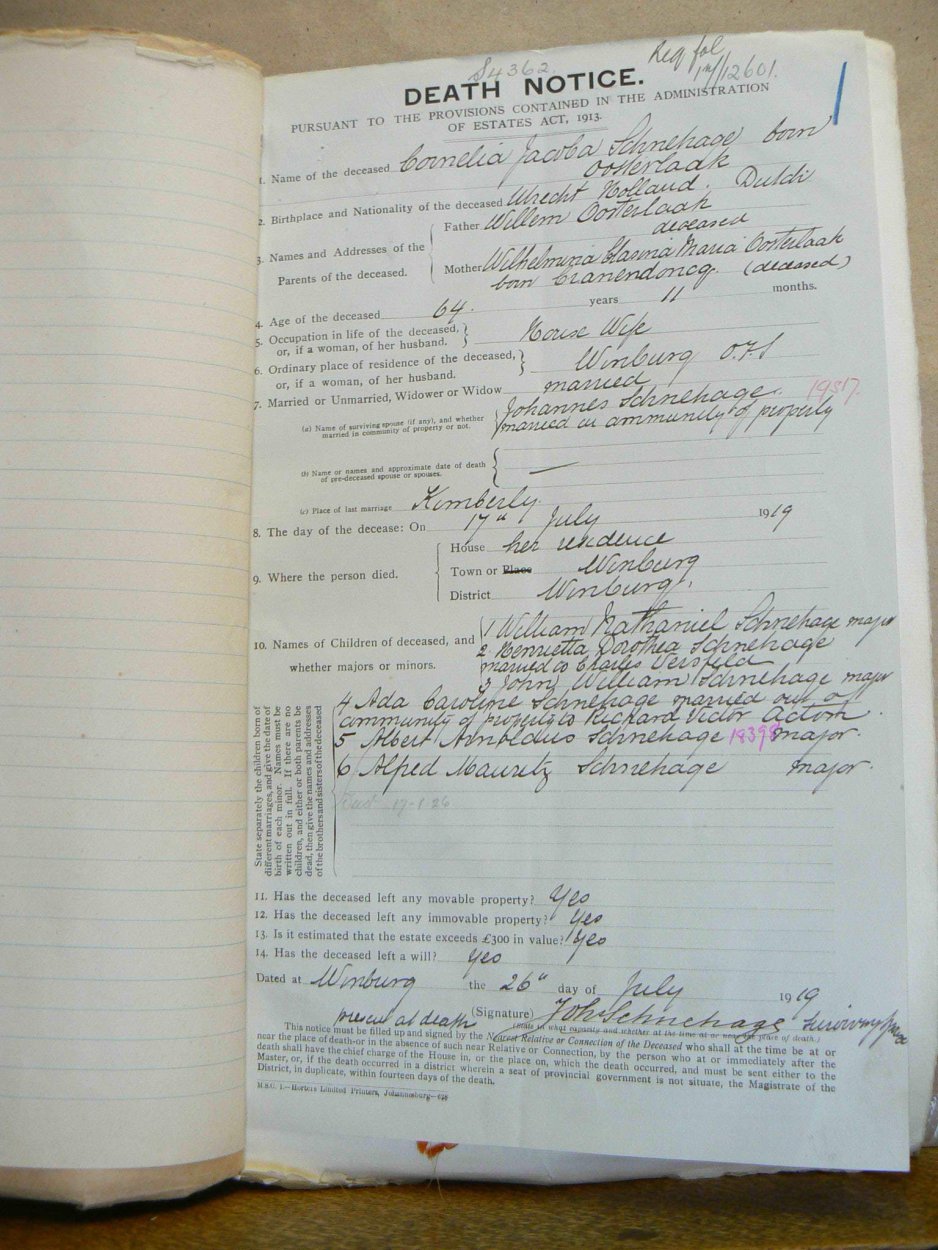 S4362
Req fol
1 m/12601.
DEATH NOTICE.
PURSUANT TO THE PROVISIONS CONTAINED IN THE ADMINISTRATION
OF ESTATES ACT, 1913.
1. Name of the deceased Cornelia Jacoba Schnehage born
Oosterlaak
2. Birthplace and Nationality of the deceased Utrecht Holland. Dutch
3. Names and Addresses of the Parents of the deceased.
Father Willem Oosterlaak
deceased
Mother Wilhelmina Clasina Maria Oosterlaak
born Cranendoncq. (deceased)
4. Age of the deceased 64. years 11 months.
5. Occupation in life of the deceased,
or, if a woman, of her husband. House Wife
6. Ordinary place of residence of the deceased,
or, if a woman, of her husband. Winburg O.F.S
7. Married or Unmarried, Widower or Widow married
(a) Name of surviving spouse (if any), and whether
married in community of property or not.
Johannes Schnehage. 19317.
married in community of property
(b) Name or names and approximate date of death
of pre-deceased spouse or spouses. —
(c) Place of last marriage Kimberly.
8. The day of the decease: On 17" July 1919
9. Where the person died.
House her residence
Town or Place Winburg
District Winburg.
10. Names of Children of deceased, and
whether majors or minors.
1 William Nathaniel Schnehage major
2 Henrietta Dorothea Schnehage
married to Charles Versfeld
3 John William Schnehage major
4 Ada Caroline Schnehage married out of
community of property to Richard Victor Acton.
5 Albert Arnoldus Schnehage 19398 major.
6 Alfred Mauritz Schnehage major.
17-1-26
State separately the children born of
different marriages, and give the date of
birth of each minor. Names must be
written out in full. If there are no
children, and either or both parents be
dead, then give the names and addresses
of the brothers and sisters of the deceased
11. Has the deceased left any movable property? Yes
12. Has the deceased left any immovable property? Yes
13. Is it estimated that the estate exceeds £300 in value? Yes
14. Has the deceased left a will? Yes
Dated at Winburg the 26" day of July 1919
(Signature) Joh Schnehage surviving spouse
present at death
(State in what capacity and whether at the time at or near the place of death.)
This notice must be filled up and signed by the Nearest Relative or Connection of the Deceased who shall at the time be at or
near the place of death—or in the absence of such near Relative or Connection, by the person who at or immediately after the
death shall have the chief charge of the House in, or the place on, which the death occurred, and must be sent either to the
Master, or, if the death occurred in a district wherein a seat of provincial government is not situate, the Magistrate of the
District, in duplicate, within fourteen days of the death.
M.S.C. 1.—Horters Limited Printers, Johannesburg—628